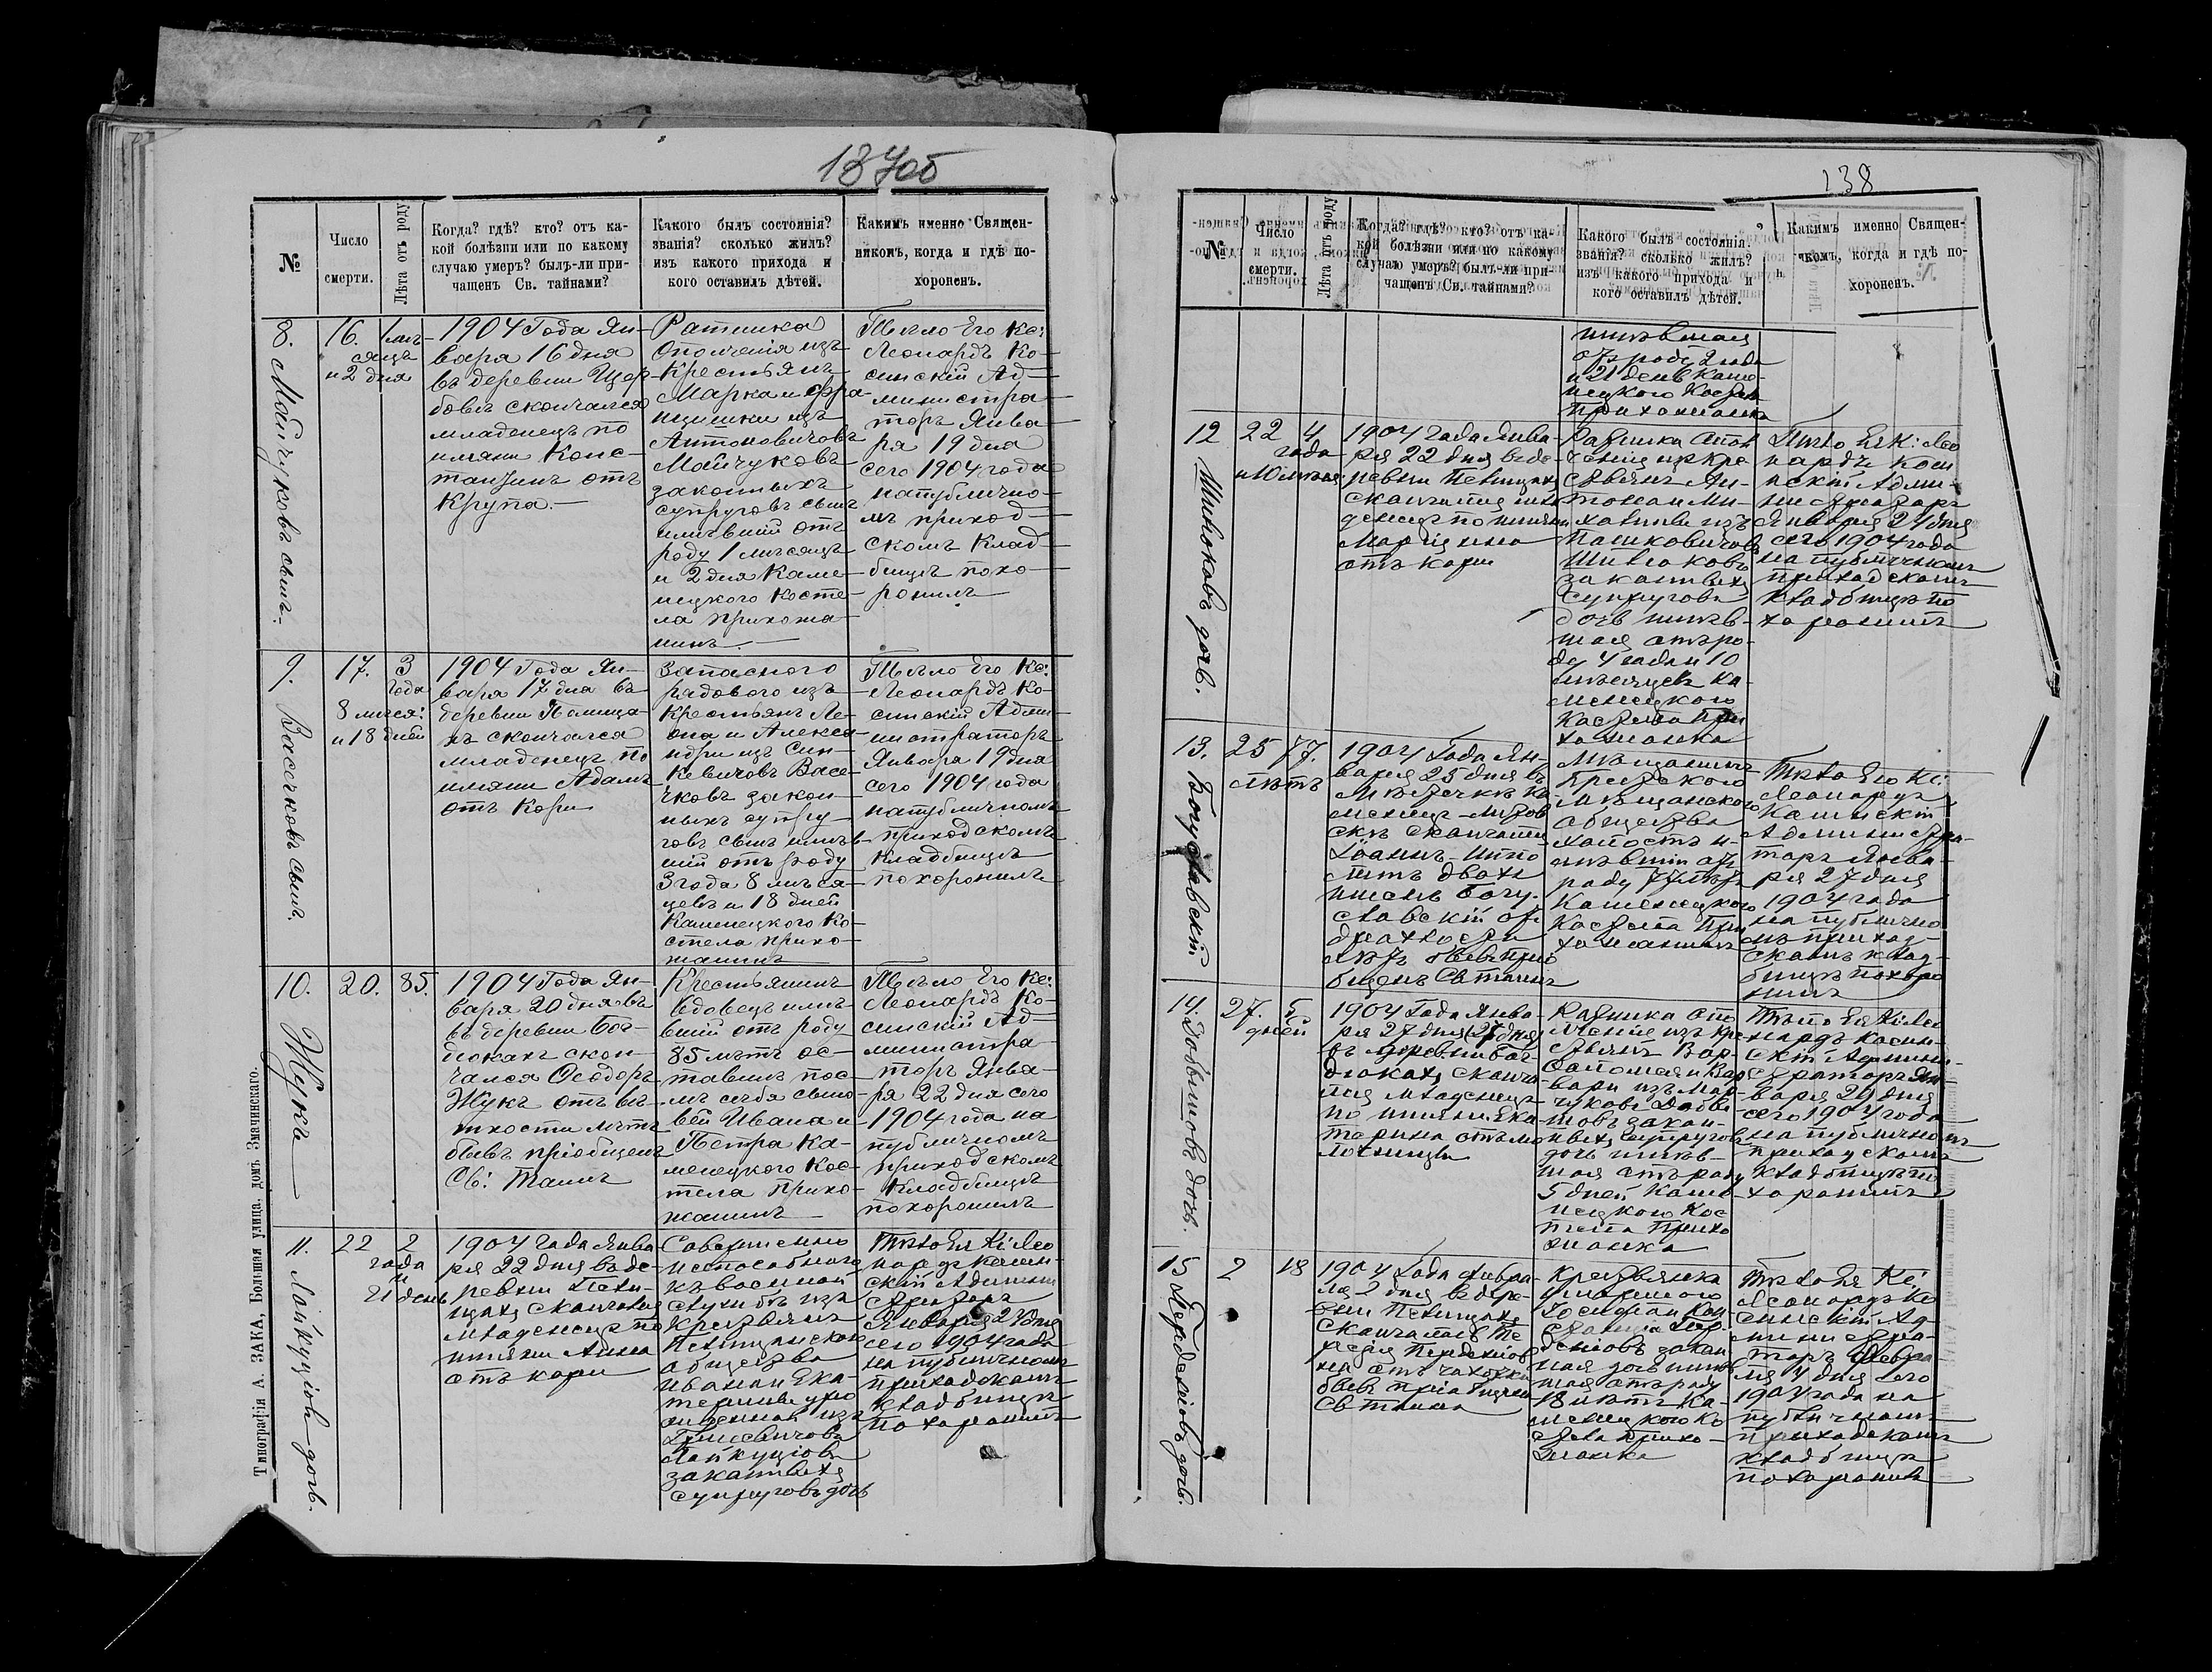 137об
№
Число
смерти.
Лѣта отъ роду
Когда? гдѣ? кто? отъ ка-
кой болѣзни или по какому
случаю умеръ? былъ-ли при-
чащенъ Св. тайнами?
Какого былъ состоянія?
званія? сколько жилъ?
изъ какого прихода и
кого оставилъ дѣтей.
Какимъ именно Священ-
никомъ, когда и гдѣ по-
хороненъ.
8. Мойчуковъ сынъ.
16.
1 мѣ-
сяцъ
и 2 дня
1904 Года Ян-
варя 16 дня
въ деревни Щер-
бовѣ скончался
младенецъ по
имяни Конс-
тантинъ отъ
Крупа.
Ратника
Ополченія изъ
Крестьянъ
Марка и Фра-
нцишки изъ
Антоновичовъ
Мойчуковъ
законныхъ
супруговъ сынъ
имѣвшій отъ
роду 1 мѣсяцъ
и 2 дня Каме-
нецкого Косте-
ла прихожа-
нинъ
Тѣло Его Кс:
Леонардъ Ко-
синскій Ад-
министра-
торъ Янва-
ря 19 дня
сего 1904 года
на публично-
мъ приход-
скомъ Клад-
бищѣ похо-
ронилъ
9. Васечковъ сынъ.
17.
3
года
8 мѣсяц:
и 18 дней
1904 Года Ян-
варя 17 дня въ
деревни Пелища-
хъ скончался
младенецъ по
имяни Адамъ
отъ Кори
Запасного
рядового изъ
Крестьянъ Ле-
она и Алекса-
ндри изъ Син-
кевичовъ Васе-
чковъ закон-
ныхъ супру-
говъ сынъ имѣв-
шій отъ роду
3 года 8 мѣся-
цевъ и 18 дней
Каменецкого Ко-
стела прихо-
жанинъ
Тѣло Его Кс:
Леонардъ Ко-
синскій Адми-
нистраторъ
Января 19 дня
сего 1904 года
на публичномъ
приходскомъ
Кладбищѣ
похоронилъ
10. Жукъ
20.
85.
1904 Года Ян-
варя 20 дня въ
въ деревни Бог-
дюкахъ скон-
чался Ѳеодоръ
Жукъ отъ вѣ-
тхости лѣтъ
бывъ пріобщенъ
Св: Таинъ
Крестьянинъ
вдовецъ имѣ-
вшій отъ роду
85 лѣтъ ос-
тавилъ пос-
лѣ себя сыно-
вей Ивана и
Петра Ка-
менецкого Кос-
тела прихо-
жанинъ
Тѣло Его Кс:
Леонардъ Ко-
синскій Ад-
министра-
торъ Янва-
ря 22 дня сего
1904 года на
публичномъ
приходскомъ
Кладбищѣ
похоронилъ
11. Лойкуціовъ дочь.
22
2
года
и
21 день
1904 Года Янва
ря 22 дня въ де-
ревни Пели-
щахъ скончалась
младенецъ по
имяни Анна
отъ кори
Совершенно
неспособнаго
къ военной
службѣ изъ
крестьянъ
Пелищанскаго
общества
Ивана и Ека-
терины уро
жденной изъ
законныхъ
супруговъ дочь
Тѣло Ея Кс: Лео
нардъ Косин-
скій Админи
страторъ
Января 24 дня
сего 1904 года
на публичномъ
приходскомъ
кладбищѣ
похоронилъ
Типографія А. ЗАКА, Большая улица, домъ Змачинскаго.
138
№
Число
смерти.
Лѣта отъ роду
Когда? гдѣ? кто? отъ ка-
кой болѣзни или по какому
случаю умеръ? былъ-ли при-
чащенъ Св. тайнами?
Какого былъ состоянія?
званія? сколько жилъ?
изъ какого прихода и
кого оставилъ дѣтей.
Какимъ именно Священ-
никомъ, когда и гдѣ по-
хороненъ.
имѣвшая
отъ роду 2 года
и 21 день Каме-
нецкого Костела
прихожанка
12 Шивоковъ дочь.
22
4
года
и 10 мѣсяц
1904 Года Янва-
ря 22 дня въ де-
ревни Пелищахъ
скончалась мла
денецъ по имяни
Марціяна
отъ кори
Ратника Опол
ченія изъ кре
стьянъ Ан-
тона и Ми-
халины изъ
Пашковичовъ
Шивоковъ
законныхъ
супруговъ
дочь имѣв-
шая отъ ро-
ду 4 года и 10
мѣсяцевъ Ка-
менецкого
Костела при
хожанка
Тѣло Ея К: Лео
нардъ Коси
нскій Адми-
нистраторъ
Января 24 дня
сего 1904 года
на публичномъ
приходскомъ
кладбищѣ по
хоронилъ
13. Богуславскій
25
77.
лѣтъ
1904 Года Ян-
варя 25 дня въ
мѣстечкѣ Ка-
менецъ-Литов
скъ скончался
Іоаннъ-Иппо
литъ двохъ
именъ Богу-
славскій от
дряхлости
лѣтъ бывъ прио
бщенъ Св таинъ
Мѣщанинъ
Брестского
Мѣщанского
общества
холостъ и-
мѣвшій от
роду 77 лѣтъ
Каменецкого
Костела При
хожанинъ
Тѣло Его Кс:
Леонардъ
Косинскій
Администра-
торъ Янва-
ря 27 дня
1904 года
на публично
мъ приход-
скомъ клад-
бищѣ похоро
нилъ
14. Довбшовъ дочь.
27.
5
дней
1904 Года Янва-
ря 27 дня (27 дня)
въ деревни Бог-
дюкахъ сконча-
лась младенецъ
по имяни Ека-
терина отъ мо
лочницы
Ратника опо
лченія изъ кре
стьянъ Вар-
фоломея и Вар-
вари изъ Мар-
законныхъ супруговъ
дочь имѣв-
шая отъ роду
5 дней Каме-
нецкого Кос
тела Прихо
жанка
Тѣло Ея Кс: Лео
нардъ Косин-
скій Админи-
страторъ Ян-
варя 29 дня
сего 1904 года
на публичномъ
приходскомъ
кладбищѣ по
хоронилъ
15 Переделіовъ дочь.
2
18
1904 Года Февра-
ля 2 дня въ дере-
вни Пелищахъ
скончалась Те
ресія Переделіов
на отъ чахотки
бывъ пріобщена
Св таинъ
Крестьянка
умершого
законная дочь имѣв
шая отъ роду
18 лѣтъ Ка-
менецкого Ко
стела прихо-
жанка
Тѣло Ея Кс:
Леонардъ Ко
синскій Ад-
министра-
торъ Февра-
ля 4 дня сего
1904 года на
публичномъ
приходскомъ
кладбищѣ
похоронилъ